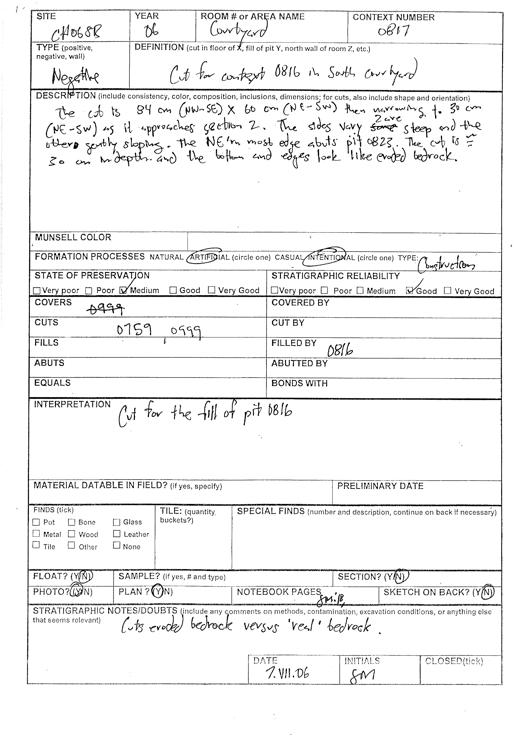 SITE YEAR ROOM # or AREA NAME CONTEXT NUMBER
CH06SR 06 Courtyard 0817
TYPE (positive, negative, wall) DEFINITION (cut in floor of X, fill of pit Y, north wall of room Z, etc.)
Negative Cut for context 0816 in South courtyard
DESCRIPTION (include consistency, color, composition, inclusions, dimensions; for cuts, also include shape and orientation)
The cut is 84 cm (NW-SE) X 60 cm (NE-SW) then narrowing to 30 cm
(NE-SW) as it approaches section 2. The sides vary 2 are steep and the
others gently sloping. The NE'rn most edge abuts pit 0823. The cut is ≈
30 cm in depth and the bottom and edges look like eroded bedrock.
MUNSELL COLOR
FORMATION PROCESSES NATURAL ARTIFICIAL (circle one) CASUAL INTENTIONAL (circle one) TYPE: Construction
STATE OF PRESERVATION STRATIGRAPHIC RELIABILITY
Very poor Poor Medium Good Very Good Very poor Poor Medium Good Very Good
COVERS 0999 COVERED BY
CUTS 0759, 0999 CUT BY
FILLS FILLED BY 0816
ABUTS ABUTTED BY
EQUALS BONDS WITH
INTERPRETATION
Cut for the fill of pit 0816
MATERIAL DATABLE IN FIELD? (if yes, specify) PRELIMINARY DATE
FINDS (tick) TILE: (quantity, buckets?) SPECIAL FINDS (number and description, continue on back if necessary)
Pot Bone Glass
Metal Wood Leather
Tile Other None
FLOAT? (Y/N) SAMPLE? (if yes, # and type) SECTION? (Y/N)
PHOTO? (Y/N) PLAN? (Y/N) NOTEBOOK PAGES SKETCH ON BACK? (Y/N)
STRATIGRAPHIC NOTES/DOUBTS (include any comments on methods, contamination, excavation conditions, or anything else
that seems relevant)
Cuts eroded bedrock versus 'real' bedrock.
DATE INITIALS CLOSED(tick)
7.VII.06 SM